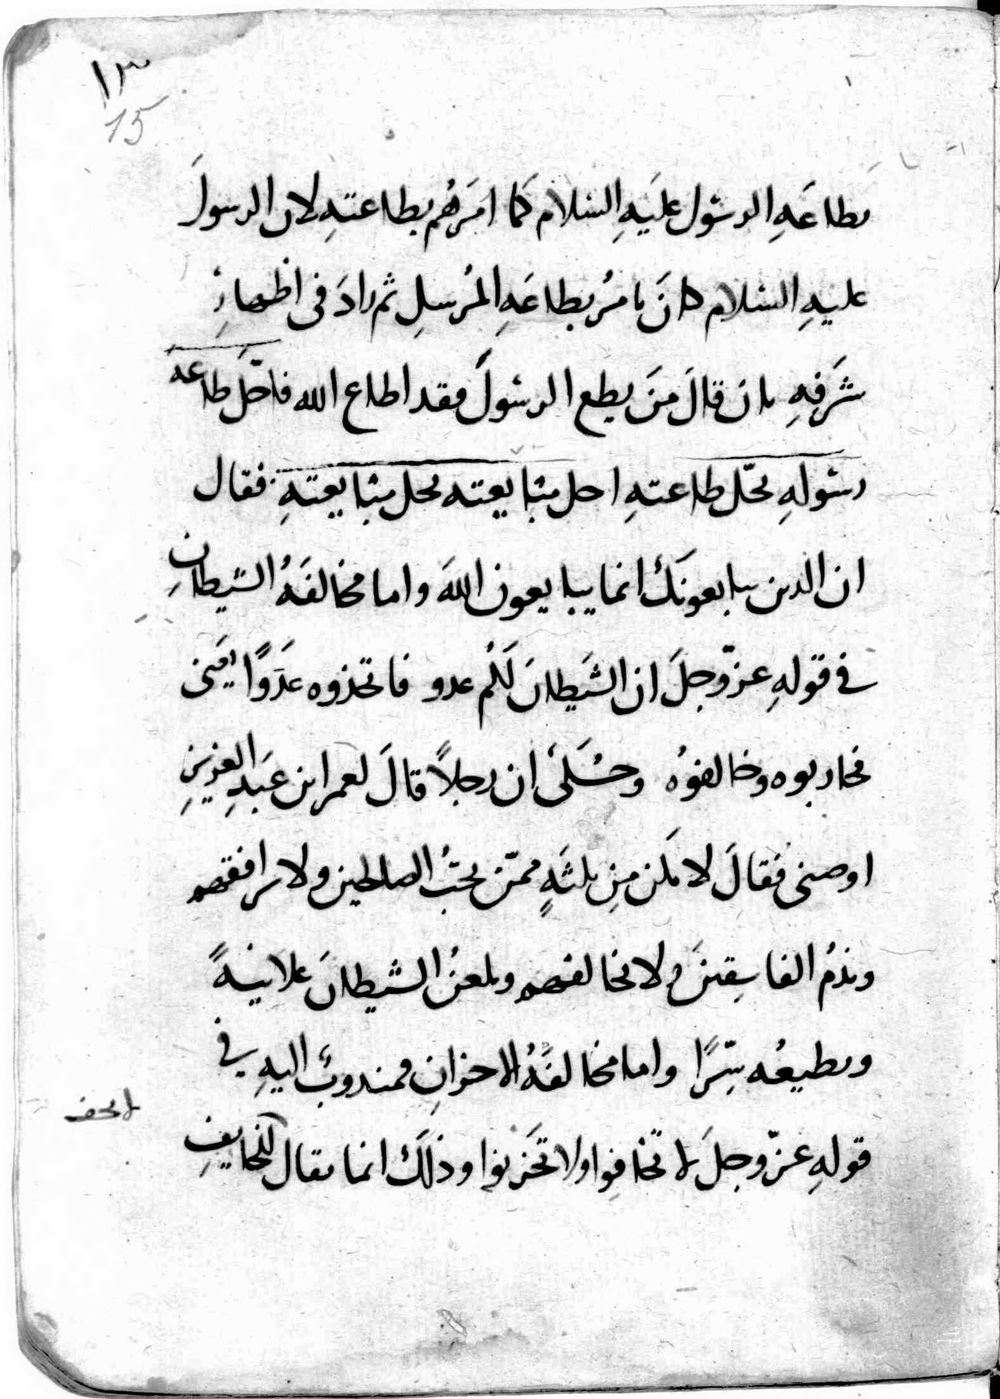 ١٣
15
بطاعَهِ الرسُول عليَهِ السَلام كما امَرَهُم بطاعتهِ لان الرسولَ
عليهِ السَلام كانَ يامرُ بطاعَهِ المُرسلِ ثم زادَ فى اظهارِ
شَرَفِهِ بان قالَ منَ يطع الرسُولَ فقد اطاع الله فاحّلَ طاعه
رسُولهِ محّل طاعتهِ احل مبايعته محل مبايعتهِ فقال
ان الذين يبايعونَكَ انما يبايعون اللهَ واما مخالفَهُ الشيطانِ
فى قولهِ عزّوجلَ ان الشَيطانَ لَكُم عدو فاتخذوه عَدَوًا يَعنى
فحاربوه وخالفوُه وحُكىَ ان رجلاً قالَ لعمر ابن عَبَدِ العزيزِ
اوصنى فَقالَ لا تكَن مِنِ ثلثَهٍ ممّن يحبُ الصالحين ولا يرافقهم
ويذمُ الفاسِقينَ ولا يخالفهم ويلعنُ الشيطانَ علانيةً
ويطيعُه سِّرًا واما مخالفَهُ الاحزانِ فمندوبُ اليهِ فى
قولهِ عزّوجلَ لا تخافوا ولا تَحَزنوا وذلَكَ انما يقال للخايفِ
لا تخف